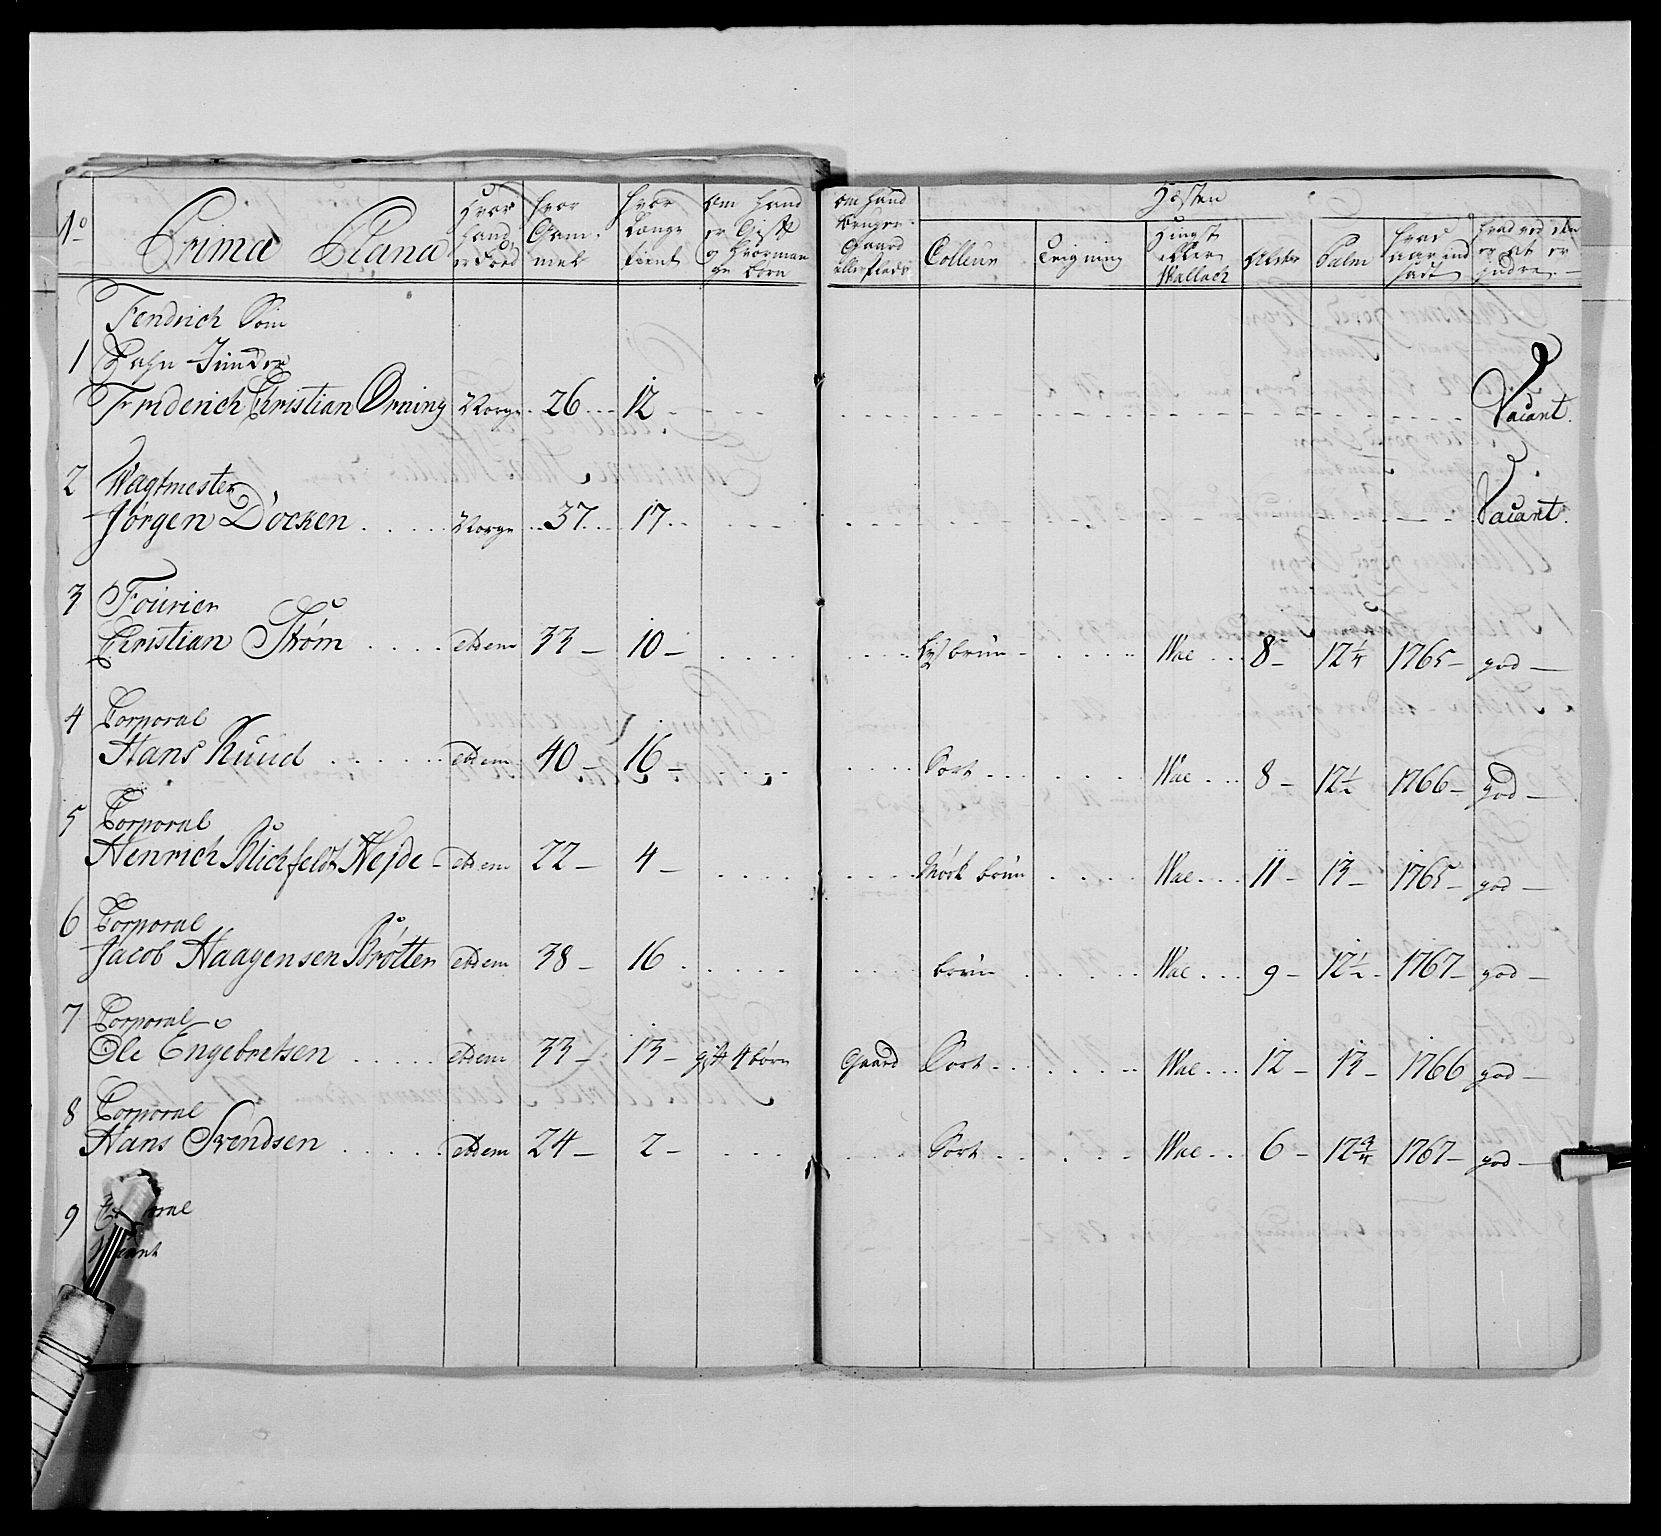 No Prima Plana Hvor hand er Fød hvor Gam mel hvor Længe tient om hand er Gift og hvor man ge børn om hand bruger Gaard eller Plads Hæsten Colleur Teigning Hingst eller Wallach Alder Palm hvad aar ind satt hvad ved den er at er indre
Fendrich Som
1 Fahn Juncker
Friderich Christian Ørning Norge 26 12 Vacant.
2 Wagtmester
Jørgen Docken Norge 37 17 Vacant.
3 Fourier
Christian Strøm Ibdem 33 10 Lys brun Wal 8 12 1/4 1765 god
4 Corporal
Hans Ruud Ibdem 40 16 Sort Wal 8 12 1/2 1766 god
5 Corporal
Henrich Blichfeldt Hejde Ibdem 22 4 Mørk brun Wal 11 13 1765 god
6 Corporal
Jacob Haagensen Brøtten Ibdem 38 16 brun Wal 9 12 1/2 1767 god
7 Corporal
Ole Engebretsen Ibdem 33 13 gift 4 børn Gaard Sort Wal 12 13 1766 god
8 Corporal
Hans Svendsen Ibdem 24 2 Sort Wal 6 12 3/4 1767 god
9 Corporal
Vacant